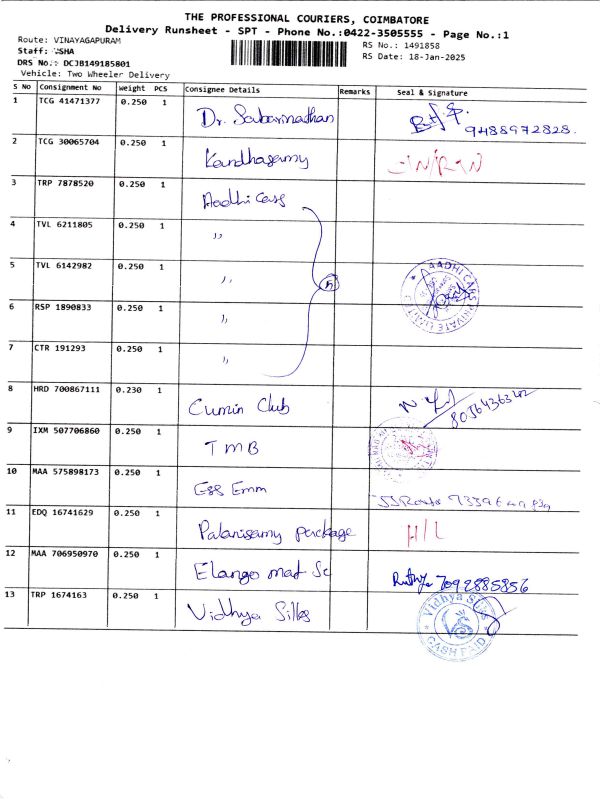 THE PROFESSIONAL COURIERS, COIMBATORE
Delivery Runsheet - SPT - Phone No.:0422-3505555 - Page No.:1
Route: VINAYAGAPURAM
RS No.: 1491858
Staff: USHA
RS Date: 18-Jan-2025
DRS No.: DCJB149185801
Vehicle: Two Wheeler Delivery
S No Consignment No Weight PCS Consignee Details Remarks Seal & Signature
1 TCG 41471377 0.250 1 Dr. Sabarinadhan 9488972828.
2 TCG 30065704 0.250 1 Kandhasamy
3 TRP 7878520 0.250 1 Aadhi Cass
4 TVL 6211805 0.250 1 ,,
5 TVL 6142982 0.250 1 ,, AADHI CARS PRIVATE LIMITED
6 RSP 1890833 0.250 1 ,,
7 CTR 191293 0.250 1 ,,
8 HRD 700867111 0.230 1 Cumin Club
9 IXM 507706860 0.250 1 TMB
10 MAA 575898173 0.250 1 Ess Emm
11 EDQ 16741629 0.250 1 Palanisamy package H/L
12 MAA 706950970 0.250 1 Elango mat Sc 7092885856
13 TRP 1674163 0.250 1 Vidhya Silks Vidhya Silks CASH PAID